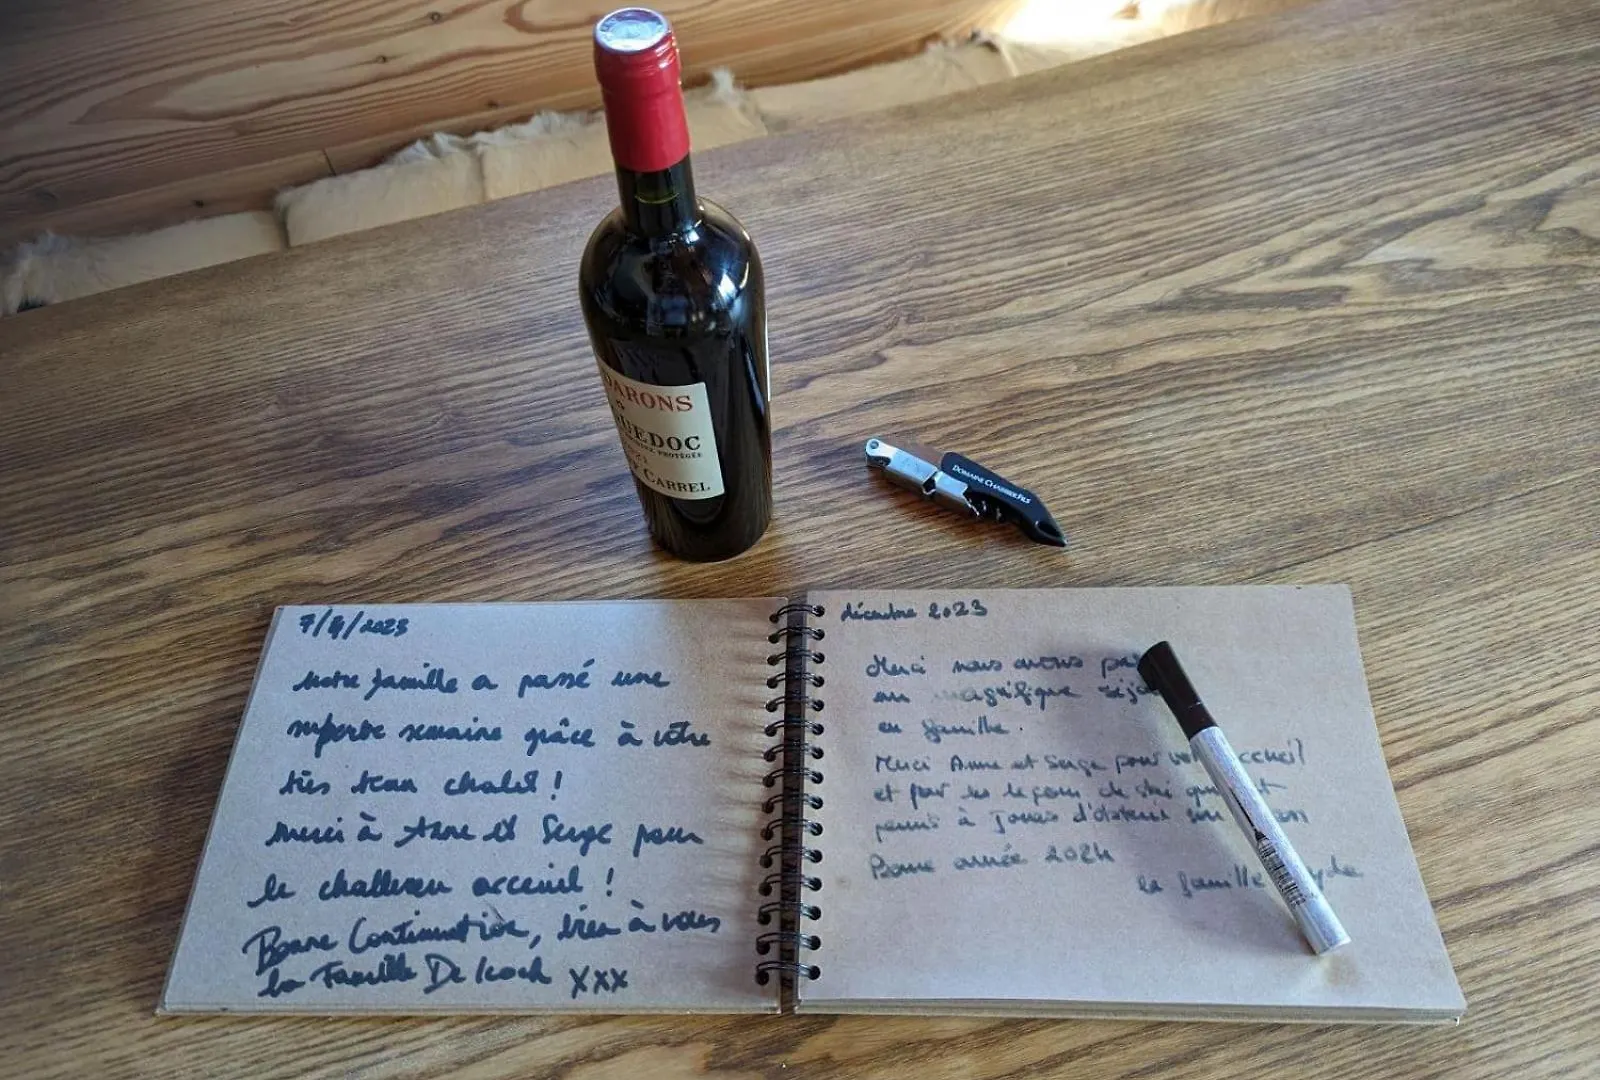 DARONS
GUEDOC
PROTÉGÉE
CARREL
DOMAINE CHAMBERFILS
7/8/2023
Notre famille a passé une
superbe semaine grâce à votre
très beau chalet !
merci à Anne et Serge pour
le challeren acceuil !
Bonne Continuation, bien à vous
la Famille De Koch XXX
décembre 2023
Merci nous avons
un magnifique
en famille.
Merci Anne et Serge pour
et par les leçons de ski
permis à d'obtenir
Bonne année 2024
la famille